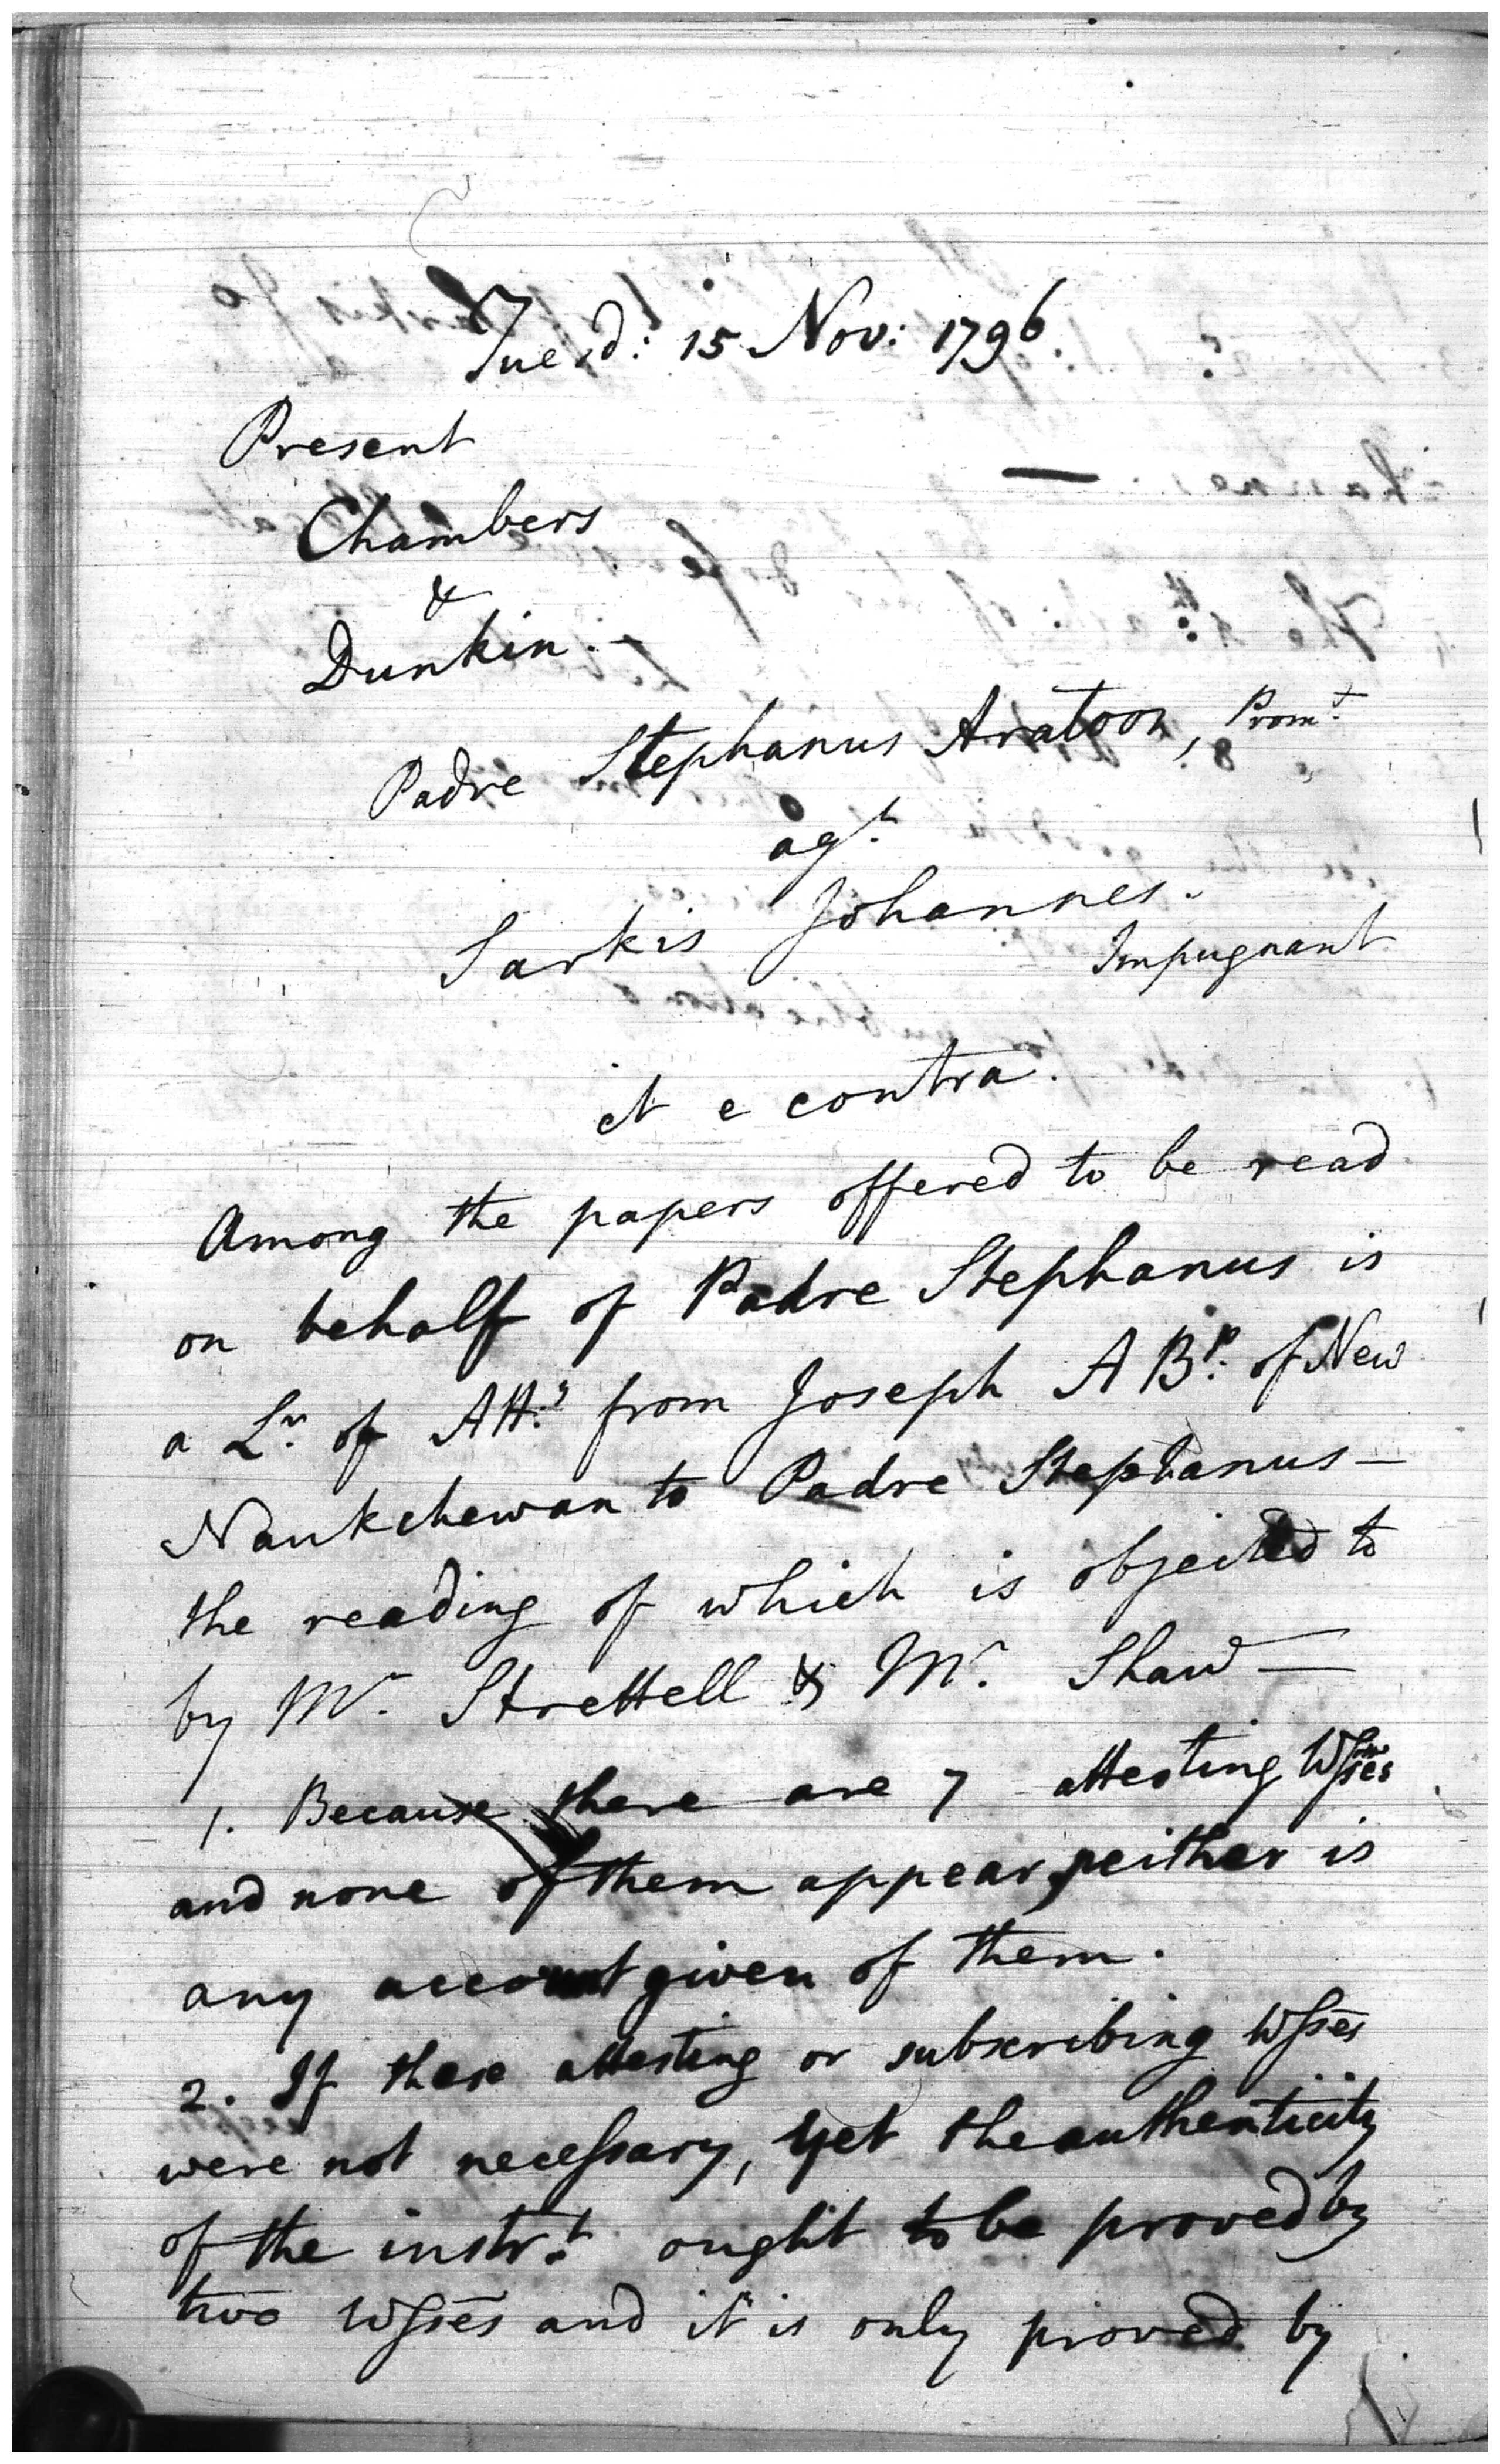 Tuesd: 15 Nov: 1796
Present
Chambers
&
Dunkin. —
Padre Stephanus Aratoon, Prom.t
ag.t
Sarkis Johannes.
Impugnant
et e contra.
Among the papers offered to be read
on behalf of Padre Stephanus is
a Lr. of Att.y from Joseph A Bp. of New
Naukchewan to Padre Stephanus —
the reading of which is objected to
by Mr. Strettell & Mr. Shaw —
1. Because there are 7 attesting Wſses
and none of them appear, neither is
any account given of them.
2. If these attesting or subscribing Wſses
were not neceſsary, yet the authenticity
of the instr.t ought to be proved by
two Wſses and it is only proved by